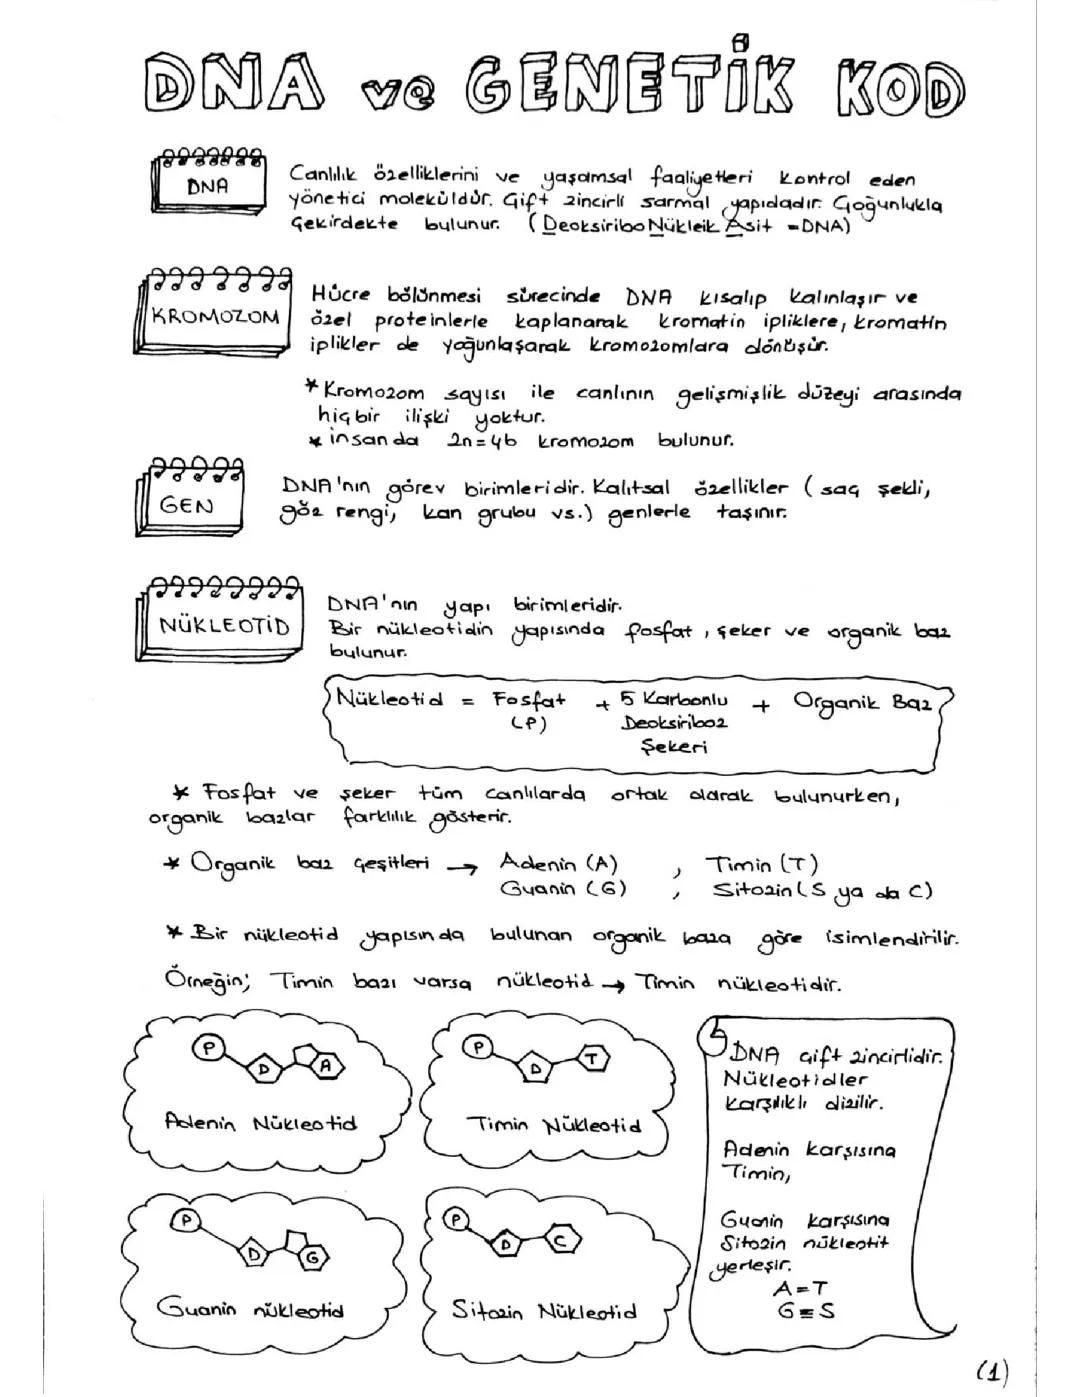 DNA ve GENETİK KOD
DNA
Canlılık özelliklerini ve yaşamsal faaliyetleri kontrol eden
yönetici moleküldür. Çift zincirli sarmal yapıdadır. Çoğunlukla
Çekirdekte bulunur. (Deoksiribo Nükleik Asit = DNA)
KROMOZOM
Hücre bölünmesi sürecinde DNA kısalıp kalınlaşır ve
özel proteinlerle kaplanarak kromatin ipliklere, kromatin
iplikler de yoğunlaşarak kromozomlara dönüşür.
* Kromozom sayısı ile canlının gelişmişlik düzeyi arasında
hiçbir ilişki yoktur.
* insanda 2n=46 kromozom bulunur.
GEN
DNA'nın görev birimleridir. Kalıtsal özellikler (saç şekli,
göz rengi, kan grubu vs.) genlerle taşınır.
NÜKLEOTİD
DNA'nın yapı birimleridir.
Bir nükleotidin yapısında fosfat, şeker ve organik baz
bulunur.
Nükleotid = Fosfat + 5 Karbonlu + Organik Baz
(P) Deoksiriboz
Şekeri
* Fosfat ve şeker tüm canlılarda ortak olarak bulunurken,
organik bazlar farklılık gösterir.
* Organik baz çeşitleri → Adenin (A) , Timin (T)
Guanin (G) , Sitozin (S ya da C)
* Bir nükleotid yapısında bulunan organik baza göre isimlendirilir.
Örneğin; Timin bazı varsa nükleotid → Timin nükleotidir.
P D A
Adenin Nükleotid
P D T
Timin Nükleotid
P D G
Guanin nükleotid
P D C
Sitozin Nükleotid
DNA çift zincirlidir.
Nükleotidler
karşılıklı dizilir.
Adenin karşısına
Timin,
Guanin karşısına
Sitozin nükleotit
yerleşir.
A=T
G≡S
(1)